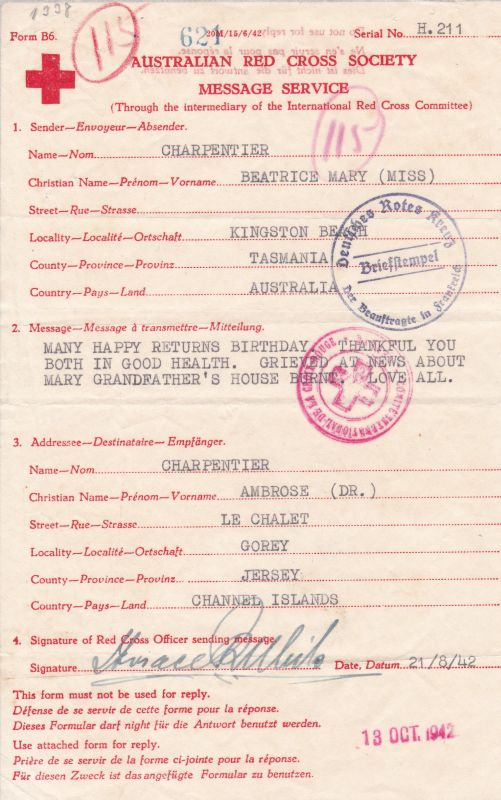 1338
115
621
20M/15/6/42
Form B6.
Serial No. H.211
AUSTRALIAN RED CROSS SOCIETY
MESSAGE SERVICE
(Through the intermediary of the International Red Cross Committee)
115
1. Sender—Envoyeur—Absender.
Name—Nom CHARPENTIER
Christian Name—Prénom—Vorname BEATRICE MARY (MISS)
Street—Rue—Strasse
Locality—Localité—Ortschaft KINGSTON BEACH
County—Province—Provinz TASMANIA
Country—Pays—Land AUSTRALIA
Deutsches Rotes Kreuz
Briefstempel
Der Beauftragte in Frankreich
2. Message—Message à transmettre—Mitteilung.
MANY HAPPY RETURNS BIRTHDAY. THANKFUL YOU
BOTH IN GOOD HEALTH. GRIEVED AT NEWS ABOUT
MARY GRANDFATHER'S HOUSE BURNT. LOVE ALL.
COMITÉ INTERNATIONAL DE LA CROIX-ROUGE
3. Addressee—Destinataire—Empfänger.
Name—Nom CHARPENTIER
Christian Name—Prénom—Vorname AMBROSE (DR.)
Street—Rue—Strasse LE CHALET
Locality—Localité—Ortschaft GOREY
County—Province—Provinz JERSEY
Country—Pays—Land CHANNEL ISLANDS
4. Signature of Red Cross Officer sending message
Signature Date, Datum 21/8/42
This form must not be used for reply.
Défense de se servir de cette forme pour la réponse.
Dieses Formular darf night für die Antwort benutzt werden.
Use attached form for reply.
Prière de se servir de la forme ci-jointe pour la réponse.
Für diesen Zweck ist das angefügte Formular zu benutzen.
13 OCT. 1942